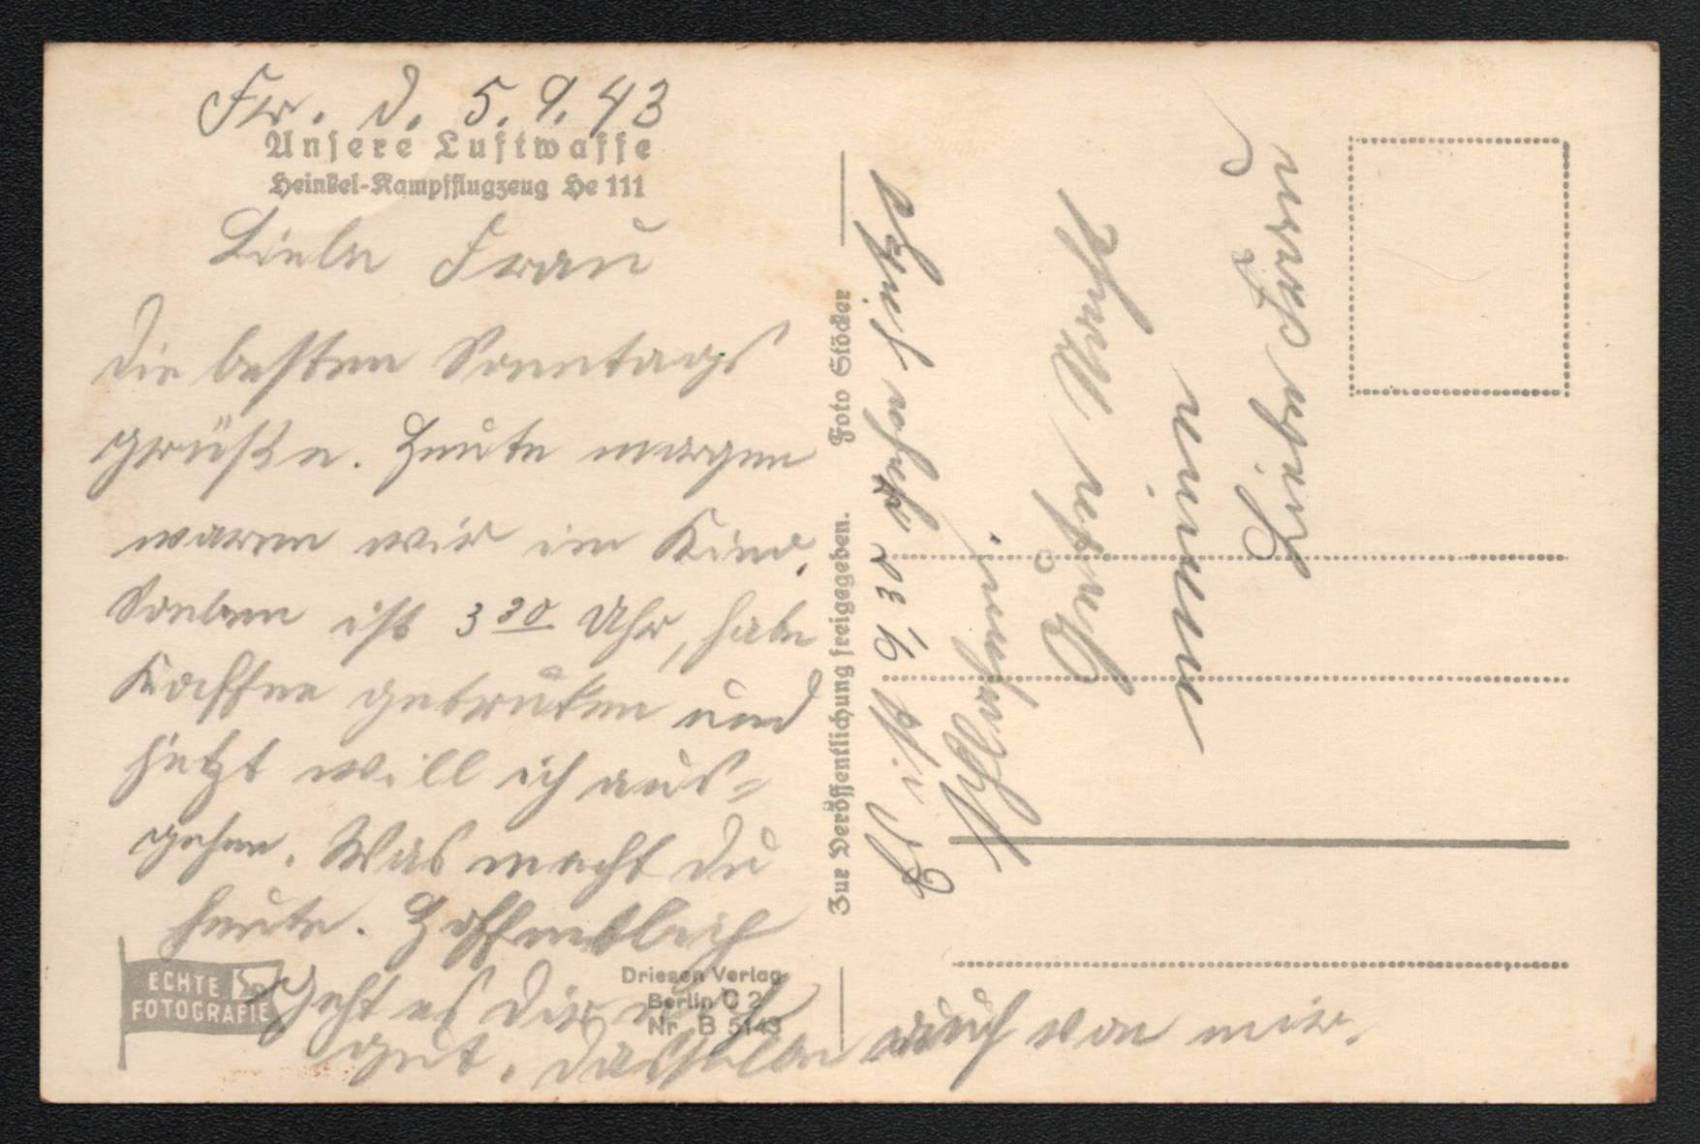 Fr. d. 5.9.43
Unsere Luftwaffe
Heinkel-Kampfflugzeug He 111
Liebe Frau
die besten Sonntags
grüße. Heute morgen
waren wir im Kino.
Soeben ist 3 30 Uhr, habe
Kaffee getruken und
jetzt will ich aus-
gehen. Was macht du
heute. Hoffentlich
geht es dir noch
gut, dasselbe auch von mir.
ECHTE
FOTOGRAFIE
Driesen Verlag
Berlin C 2
Nr. B 5143
Zur Veröffentlichung freigegeben.
Foto Stöcker
Lieben Frau
meinen
Gute Nacht
Es ist 9,30 jetzt